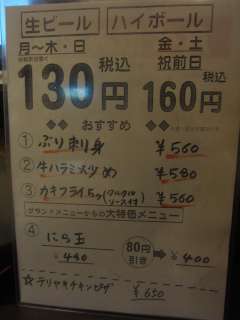 生ビール ハイボール
月〜木・日 金・土
祝前日
130円 税込 160円 税込
◆◆ おすすめ ◆◆
① ぶり刺身 ¥560
② 牛ハラミ炒め ¥580
③ カキフライ5ヶ(タルタルソース付) ¥560
グランドメニューからの大特価メニュー
④ にら玉 80円引き → ¥400
¥480
☆ テリヤキチキンピザ ¥650